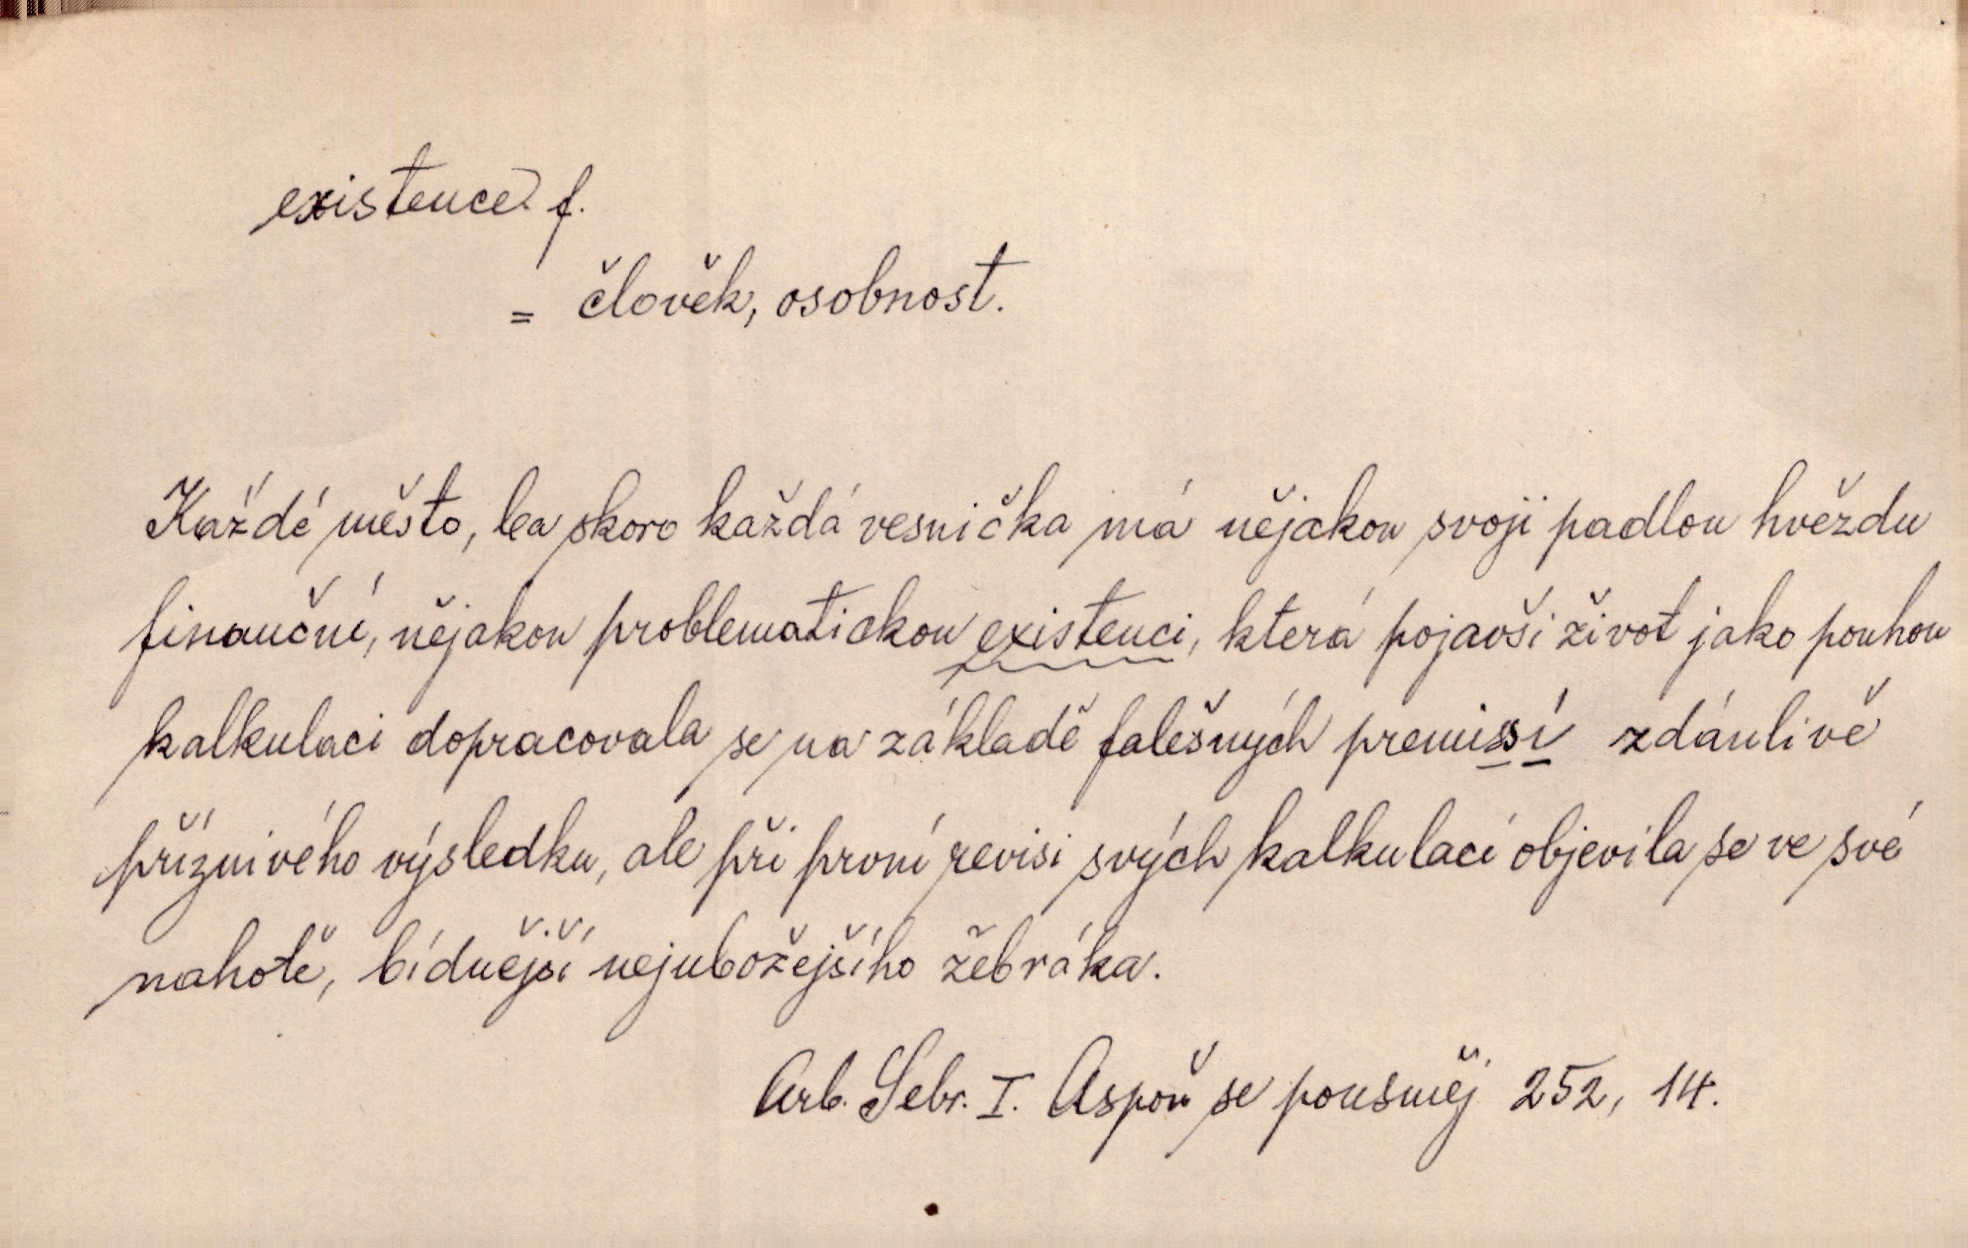 existence f.
= člověk, osobnost.
Každé město, ba skoro každá vesnička má nějakou svoji padlou hvězdu
finanční, nějakou problematickou existenci, která pojavši život jako pouhou
kalkulaci dopracovala se na základě falešných premissí zdánlivě
příznivého výsledku, ale při první revisi svých kalkulací objevila se ve své
nahotě, bídnější nejubožejšího žebráka.
Arb. Sebr. I. Aspoň se pousměj 252, 14.